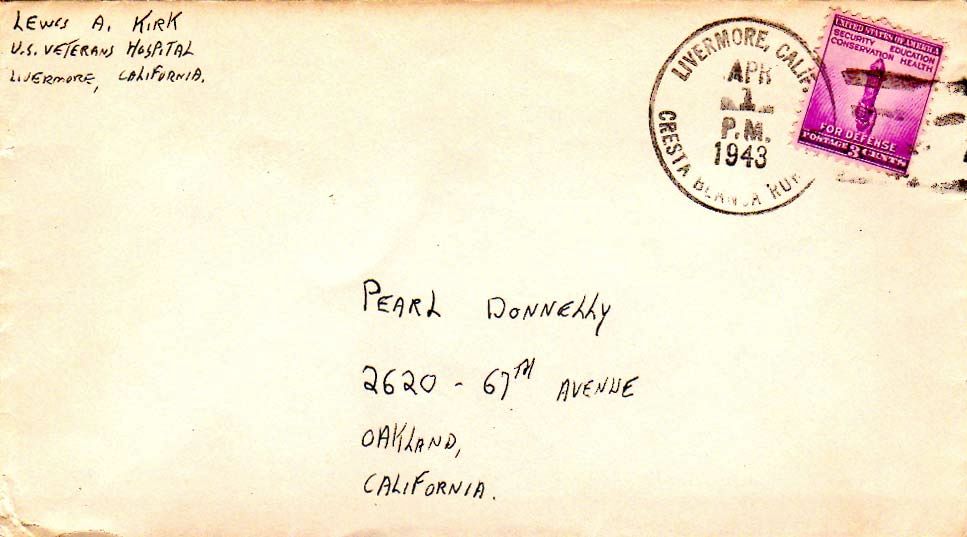 LEWIS A. KIRK
U.S. VETERANS HOSPITAL
LIVERMORE, CALIFORNIA.
LIVERMORE, CALIF.
APR
1
P.M.
1943
CRESTA BLANCA RUR
UNITED STATES OF AMERICA
SECURITY EDUCATION
CONSERVATION HEALTH
FOR DEFENSE
POSTAGE 3 CENTS
PEARL DONNELLY
2620 - 67TH AVENUE
OAKLAND,
CALIFORNIA.